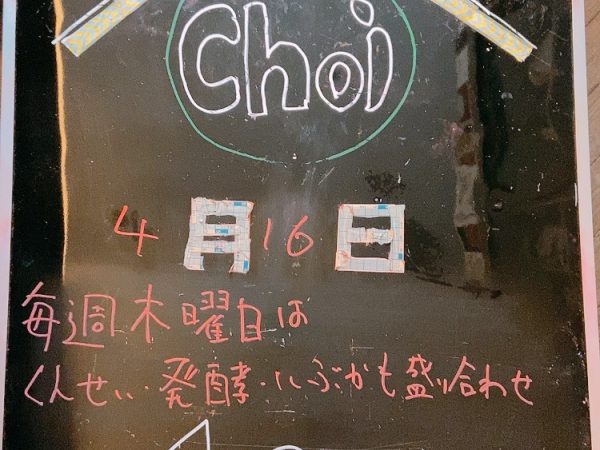 Choi
4月16日
毎週木曜日は
くんせい・発酵・いぶかも盛り合わせ